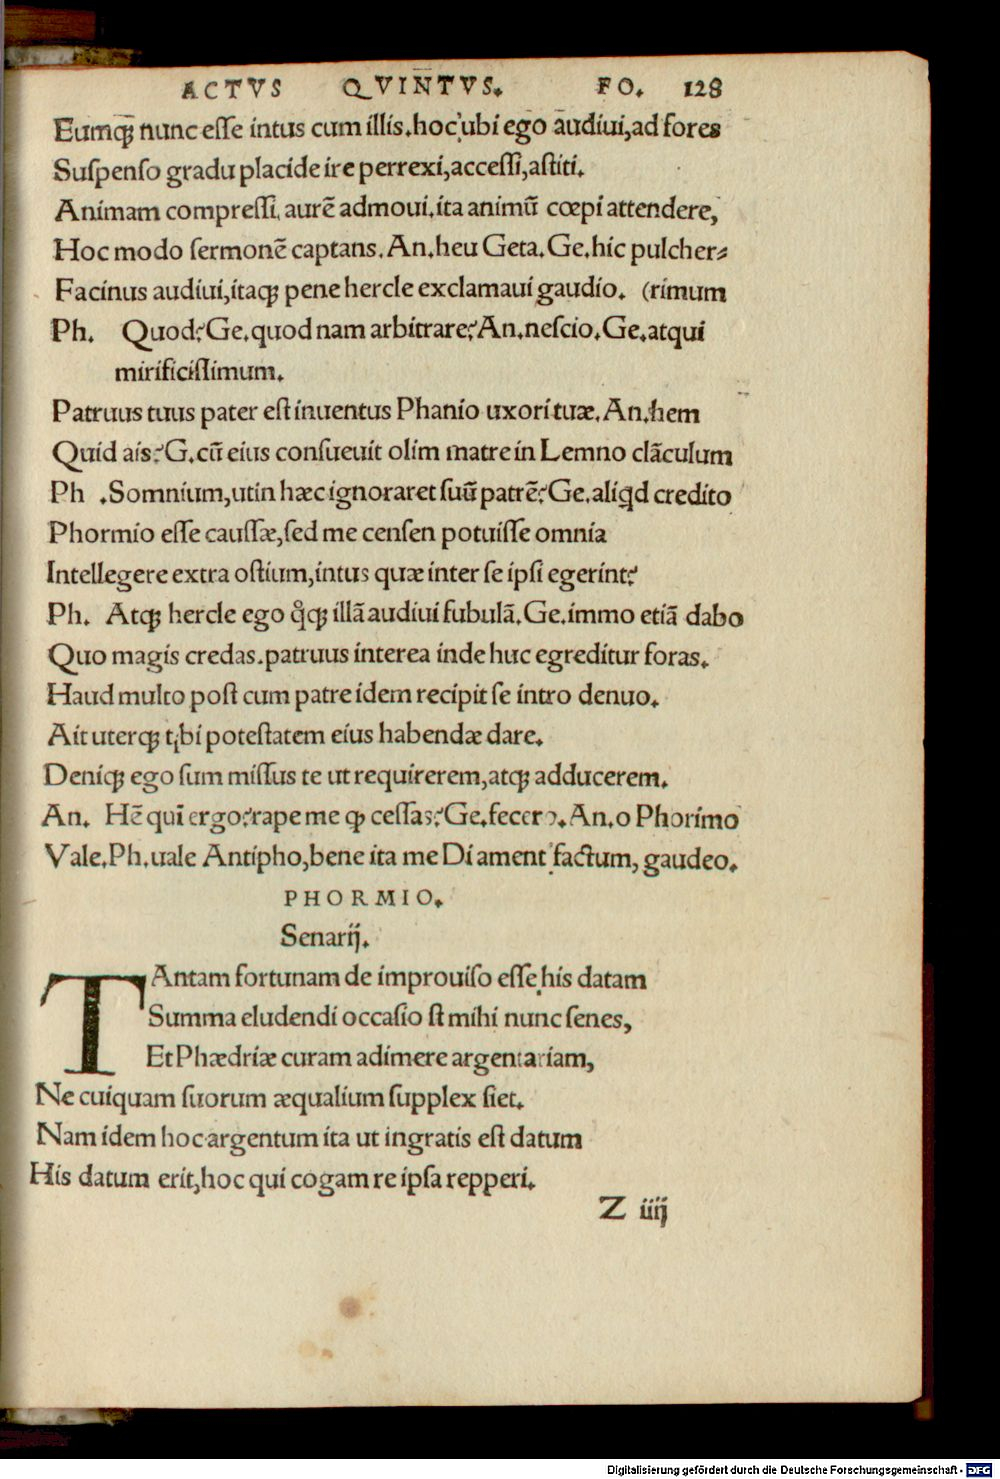 ACTVS QVIN̄TVS. FO. 128
Eumq́ꝫ nunc eſſe intus cum illis.hoc ubi ego audiui,ad fores
Suſpenſo gradu placide ire perrexi,acceſſi,aſtiti.
Animam compreſſi, aurē admoui.ita animū cœpi attendere,
Hoc modo ſermonē captans. An.heu Geta. Ge.hic pulcher⸗
Facinus audiui,itaqꝫ pene hercle exclamaui gaudio. (rimum
Ph. Quod? Ge.quod nam arbitrare? An.neſcio.Ge.atqui
mirificiſſimum.
Patruus tuus pater eſt inuentus Phanio uxori tuæ. An.hem
Quid ais? G.cū eius conſueuit olim matre in Lemno clāculum
Ph .Somnium,utin hæc ignoraret ſuū patrē? Ge.aliqd credito
Phormio eſſe cauſſæ,ſed me cenſen potuiſſe omnia
Intellegere extra oſtium,intus quæ inter ſe ipſi egerint?
Ph. Atqꝫ hercle ego qͦqꝫ illā audiui fubulā.Ge.immo etiā dabo
Quo magis credas.patruus interea inde huc egreditur foras.
Haud multo poſt cum patre idem recipit ſe intro denuo.
Ait uterqꝫ tibi poteſtatem eius habendæ dare.
Deniqꝫ ego ſum miſſus te ut requirerem,atqꝫ adducerem.
An. Hē quī ergo? rape me ꝙ ceſſas? Ge.fecero. An.o Phorimo
Vale.Ph.uale Antipho,bene ita me Di ament factum, gaudeo.
PHORMIO.
Senarij.
TAntam fortunam de improuiſo eſſe his datam
Summa eludendi occaſio ſt mihi nunc ſenes,
Et Phædriæ curam adimere argentariam,
Ne cuiquam ſuorum æqualium ſupplex ſiet.
Nam idem hoc argentum ita ut ingratis eſt datum
His datum erit,hoc qui cogam re ipſa repperi.
Z iiij
Digitalisierung gefördert durch die Deutsche Forschungsgemeinschaft - DFG